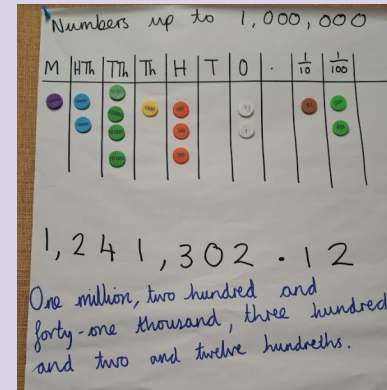 Numbers up to 1,000,000
M HTh TTh Th H T O . 1/10 1/100
1,241,302.12
One million, two hundred and
forty-one thousand, three hundred
and two and twelve hundreths.